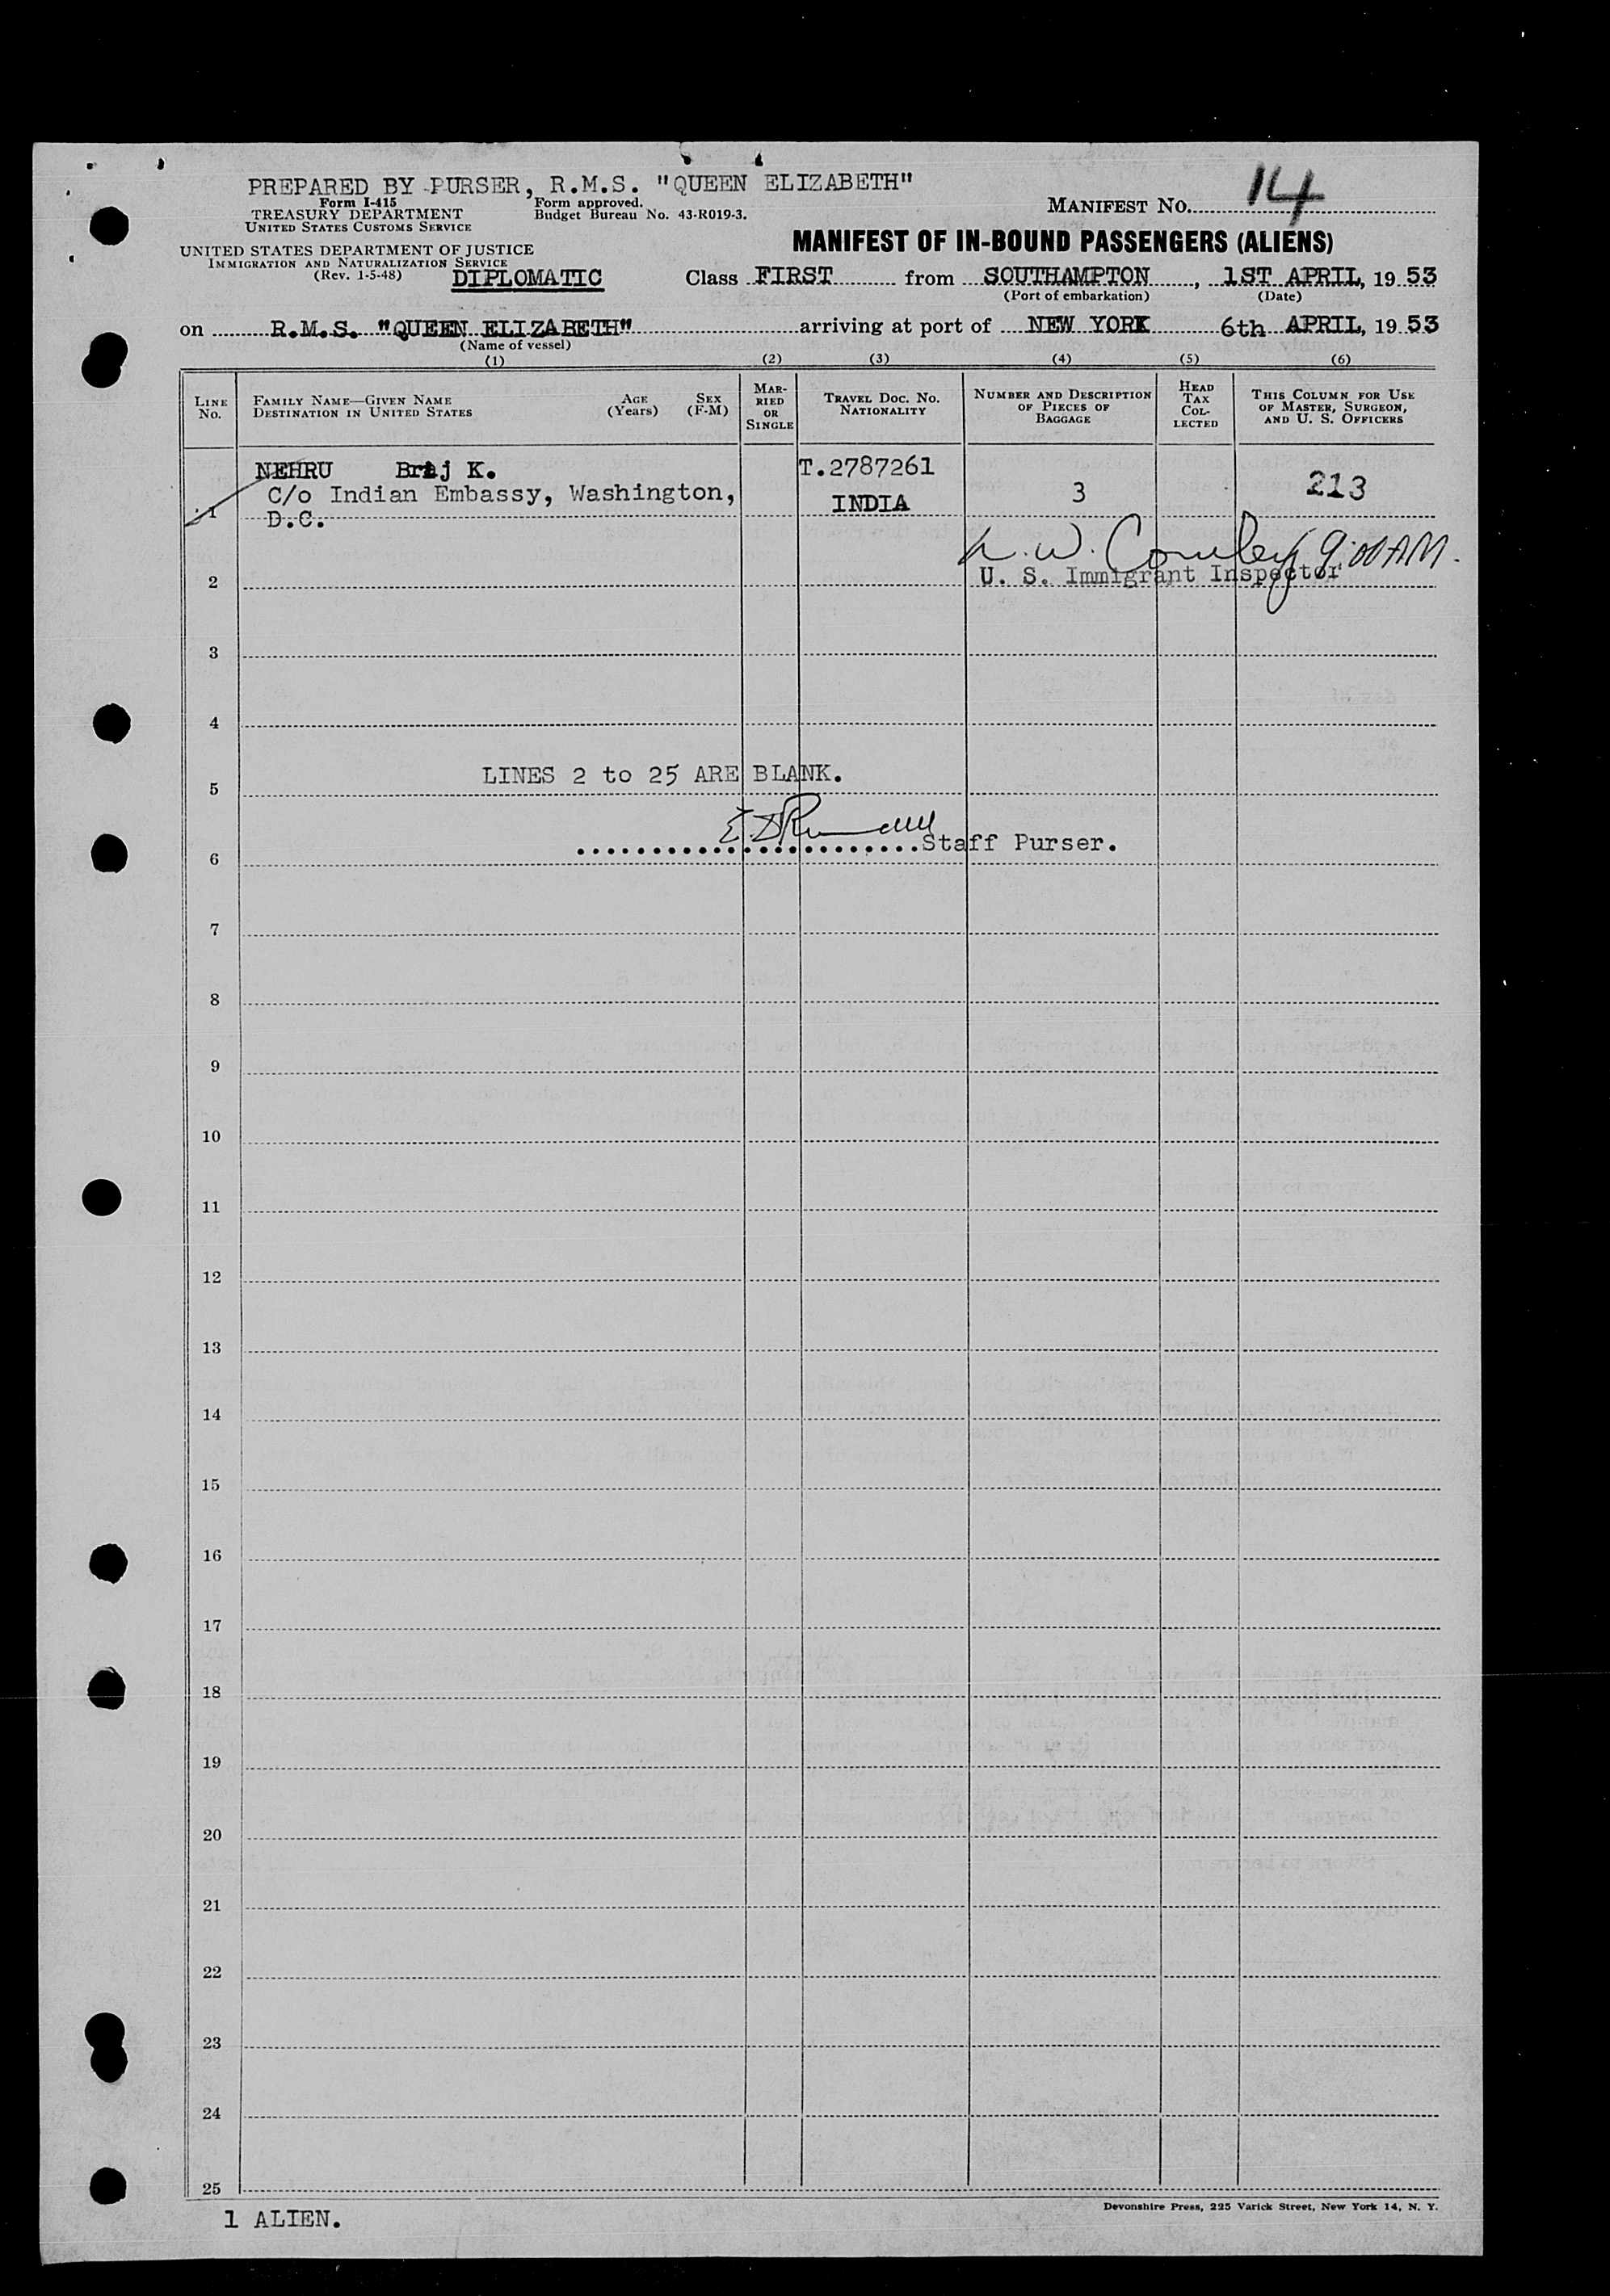 PREPARED BY PURSER, R.M.S. "QUEEN ELIZABETH"
Form I-415
TREASURY DEPARTMENT
UNITED STATES CUSTOMS SERVICE
Form approved.
Budget Bureau No. 43-R019-3.
MANIFEST NO. 14
UNITED STATES DEPARTMENT OF JUSTICE
IMMIGRATION AND NATURALIZATION SERVICE
(Rev. 1-5-48)
MANIFEST OF IN-BOUND PASSENGERS (ALIENS)
DIPLOMATIC Class FIRST from SOUTHAMPTON, 1ST APRIL, 19 53
(Port of embarkation) (Date)
on R.M.S. "QUEEN ELIZABETH" arriving at port of NEW YORK 6th APRIL, 19 53
(Name of vessel)
(1) (2) (3) (4) (5) (6)
LINE NO.
FAMILY NAME—GIVEN NAME
DESTINATION IN UNITED STATES
AGE (Years)
SEX (F-M)
MARRIED OR SINGLE
TRAVEL DOC. NO.
NATIONALITY
NUMBER AND DESCRIPTION OF PIECES OF BAGGAGE
HEAD TAX COLLECTED
THIS COLUMN FOR USE OF MASTER, SURGEON, AND U. S. OFFICERS
NEHRU Braj K. T.2787261
C/o Indian Embassy, Washington, INDIA 3 213
1 D.C.
9:00 AM.
2 U. S. Immigrant Inspector
3
4
LINES 2 to 25 ARE BLANK.
5
6 Staff Purser.
7
8
9
10
11
12
13
14
15
16
17
18
19
20
21
22
23
24
25
1 ALIEN.
Devonshire Press, 225 Varick Street, New York 14, N. Y.